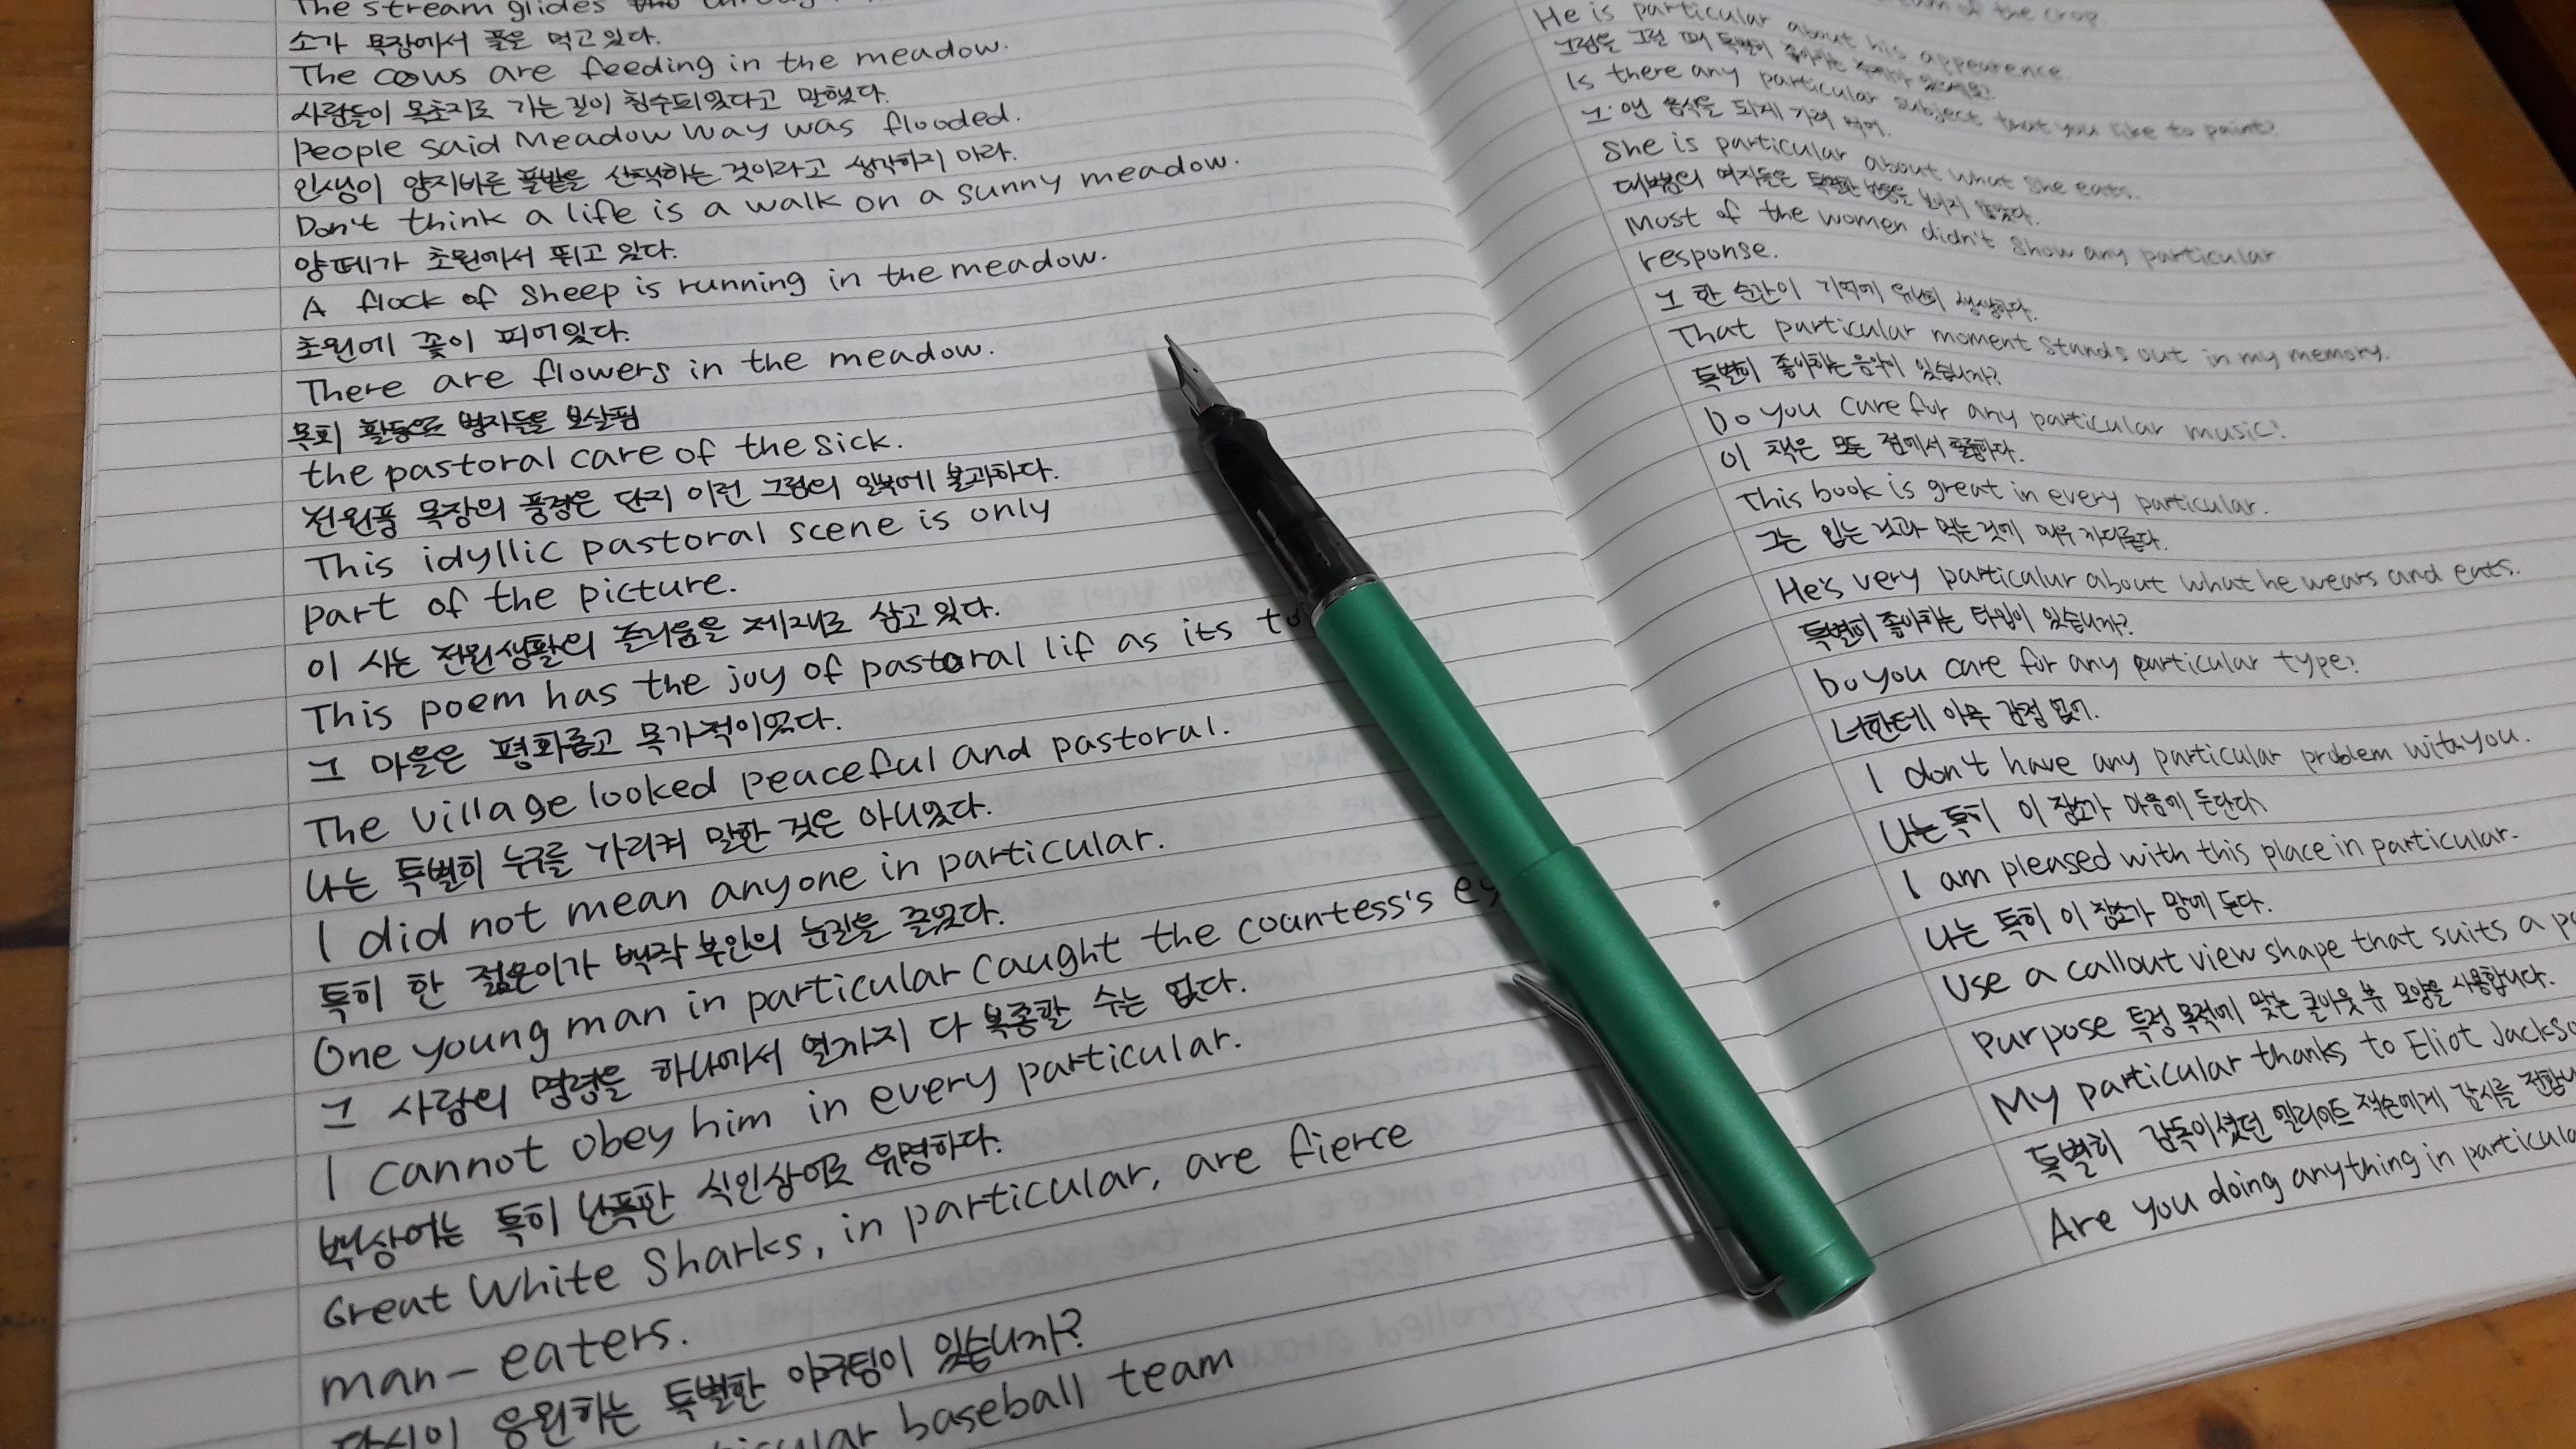 The stream glides through
소가 목장에서 풀은 먹고있다.
The cows are feeding in the meadow.
사람들이 목초지로 가는 길이 침수되었다고 말했다.
People said Meadow Way was flooded.
인생이 양지바른 풀밭을 산책하는 것이라고 생각하지 마라.
Don't think a life is a walk on a sunny meadow.
양떼가 초원에서 뛰고 있다.
A flock of sheep is running in the meadow.
초원에 꽃이 피어있다.
There are flowers in the meadow.
목회 활동으로 병자들을 보살핌
the pastoral care of the sick.
전원풍 목장의 풍경은 단지 이런 그림의 일부에 불과하다.
This idyllic pastoral scene is only
part of the picture.
이 시는 전원생활의 즐거움을 제재로 삼고있다.
This poem has the joy of pastoral lif as its
그 마을은 평화롭고 목가적이었다.
The village looked peaceful and pastoral.
나는 특별히 누구를 가리켜 말한 것은 아니었다.
I did not mean anyone in particular.
특히 한 젊은이가 백작 부인의 눈길을 끌었다.
One young man in particular caught the countess's
그 사람의 명령을 하나에서 열까지 다 복종할 수는 없다.
I cannot obey him in every particular.
백상어는 특히 난폭한 식인상어로 유명하다.
Great White Sharks, in particular, are fierce
man-eaters.
당신이 응원하는 특별한 야구팀이 있습니까?
baseball team
of the crop
He is particular about his appearence
그림을 그릴 때 특별히
Is there any particular subject that you like to paint?
그 앤 음식을 되게 가려 먹어.
She is particular about what she eats.
대부분의 여자들은 특별한 반응을 보이지 않았다.
Most of the women didn't show any particular
response.
그 한 순간이 기억에 유난히 생생하다.
That particular moment stands out in my memory.
특별히 좋아하는 음악이 있습니까?
Do you care for any particular music?
이 책은 모든 점에서 훌륭하다.
This book is great in every particular.
그는 입는 것과 먹는 것에 매우 까다롭다.
He's very particalur about what he wears and eats.
특별히 좋아하는 타입이 있습니까?
Do you care for any particular type?
너한테 아무 감정 없어.
I don't have any particular problem with you.
나는 특히 이 장소가 마음에 든단다.
I am pleased with this place in particular.
나는 특히 이 장소가 맘에 든다.
Use a callout view shape that suits a
purpose 특정 목적에 맞는 콜아웃 뷰 모양을 사용합니다.
My particular thanks to Eliot
특별히 감독이셨던 엘리어트 잭슨에게 감사를
Are you doing anything in